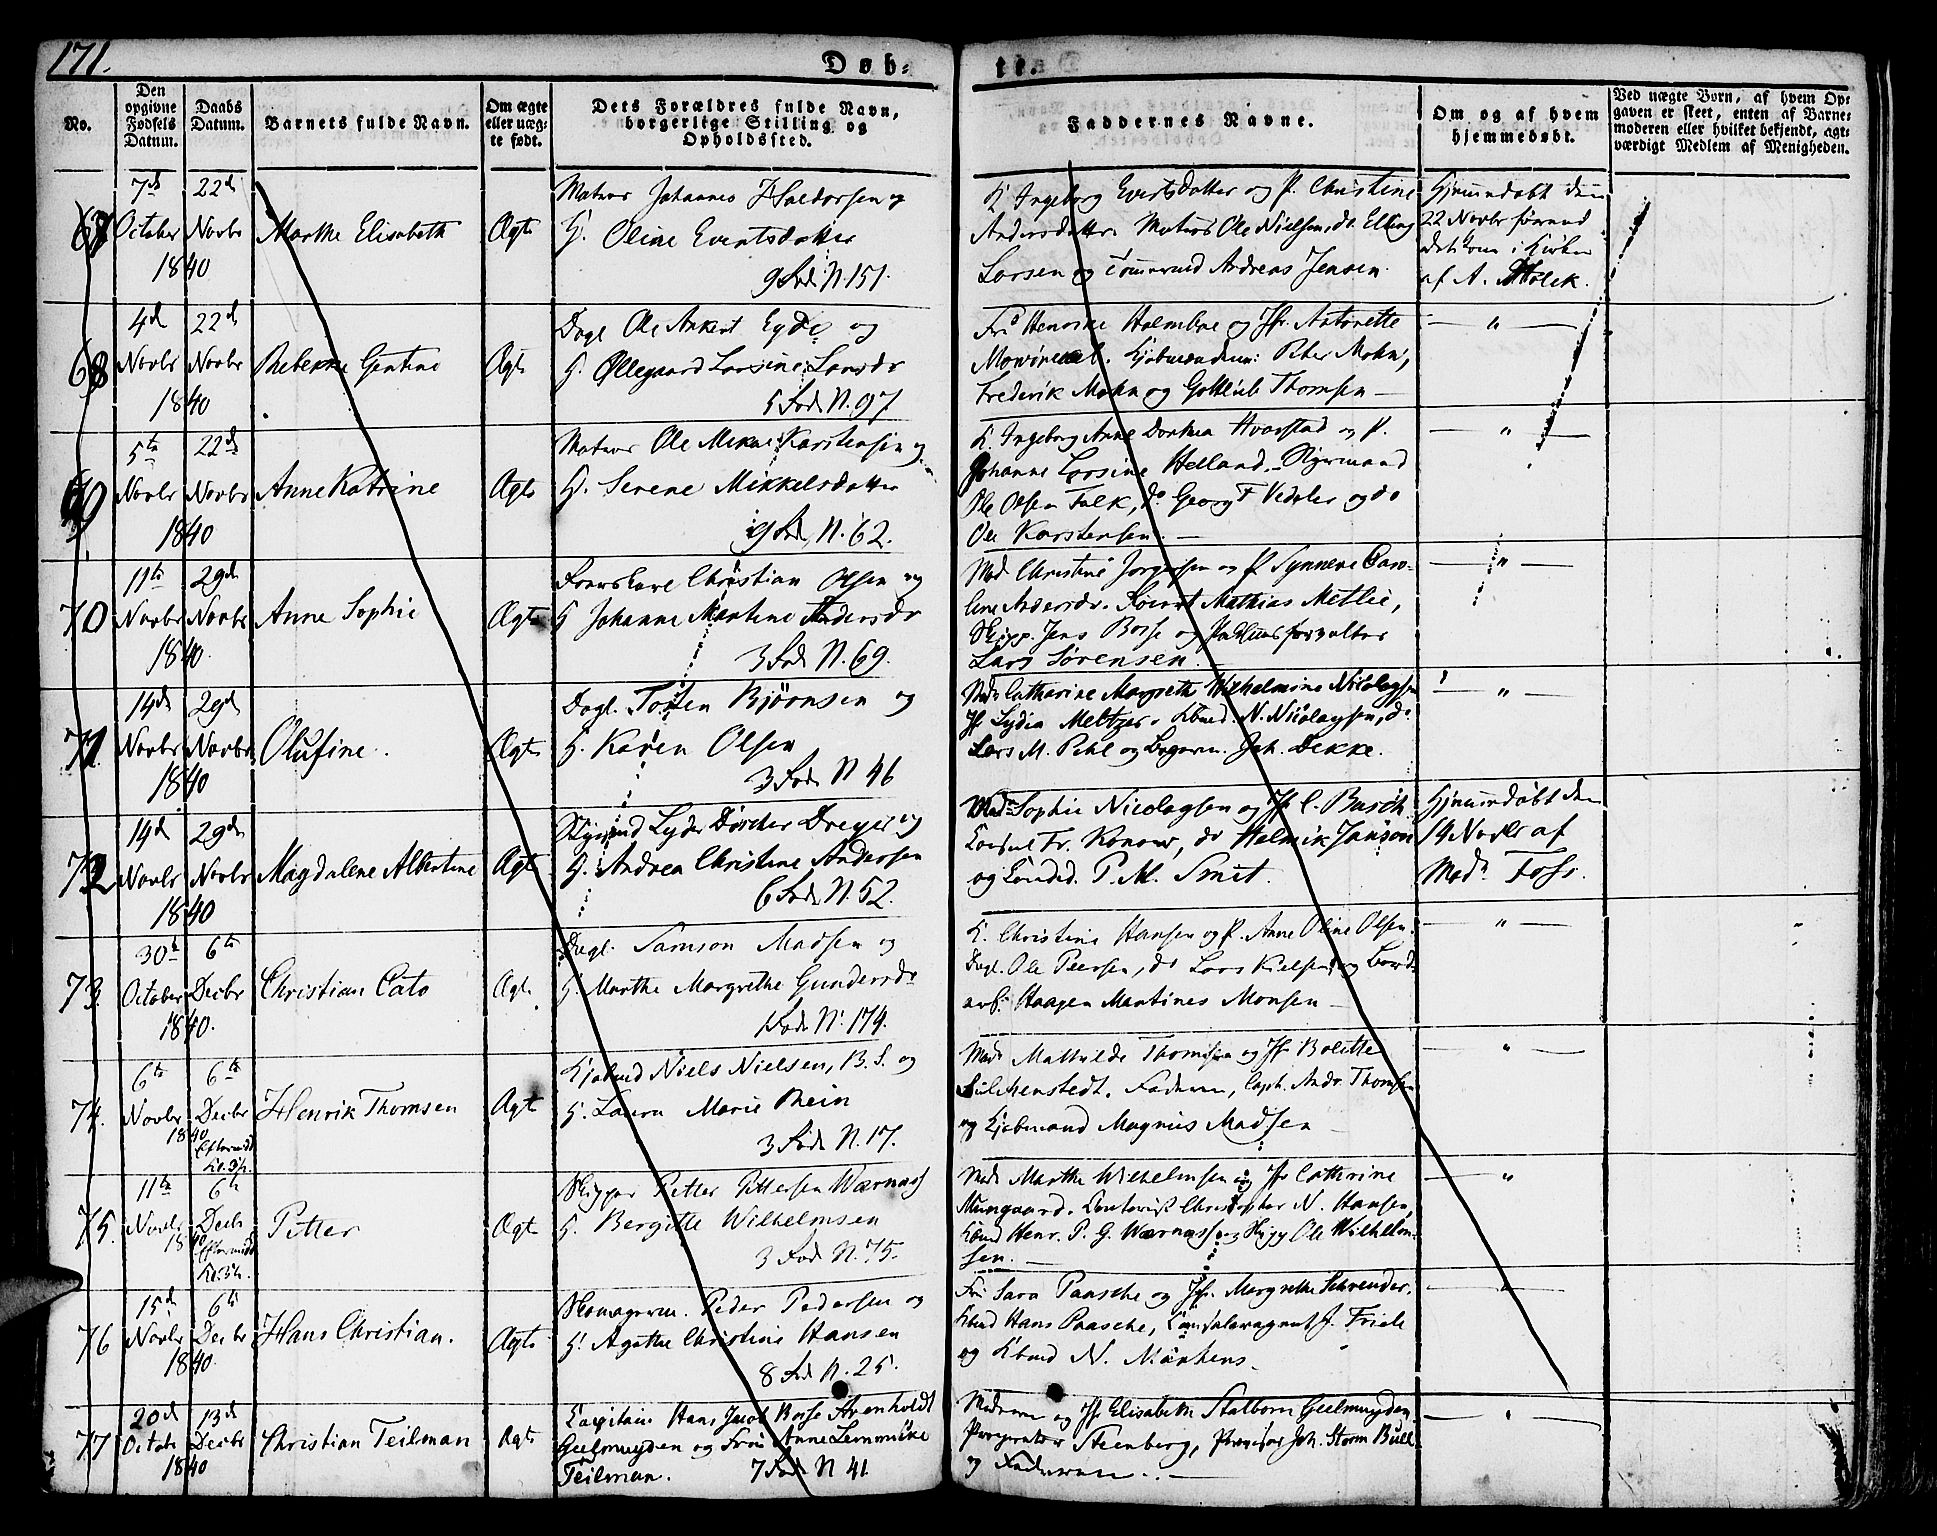 171.
Døb-
te.
No.
Den opgivne Fødsels Datum.
Daabs Datum.
Barnets fulde Navn.
Om ægte eller uæg-
te født.
Dets Forældres fulde Navn,
borgerlige Stilling og
Opholdssted.
Faddernes Navne.
Om og af hvem
hjemmedøbt.
Ved uægte Børn, af hvem Op-
gaven er skeet, enten af Barne-
moderen eller hvilket bekjendt, agt-
værdigt Medlem af Menigheden.
67 7de October 1840 22de Novbr Marthe Elisabeth Ægte
Matros Johannes Haldorsen og
H. Oline Evertsdatter
9 Fod. N. 151.
K. Ingeborg Evertsdatter og P. Christine
Andersdatter. Matros Ole Nielsen, do. Elling
Larsen og Tømmermd Andreas Jensen.
Hjemmedøbt den
22 Novbr førend
det kom i Kirken
af A. Holck.
68 4de Novbr 1840 22de Novbr Rebekke Gentine Ægte
Dagl. Ole Ankert Eyde og
H. Øllegaard Larsine Larsdr
5 Fod. N. 97
Fru Henrike Holmboe og Jfr. Antonette
Kjøbmændene: Peter Mohn,
Frederik Mohn og Gottlieb Thomsen —
— " —
69 5te Novbr 1840 22de Novbr Anne Katrine Ægte
Matros Ole Karstensen og
H. Serene Mikkelsdatter
9 Fod. N. 62.
K. Ingeborg Anne Dorthea Hvorstad og P.
Johanne Larsine Helland. —
Ole Olsen Falk, do. Georg F. Vedeler og do
Ole Karstensen. —
— " —
70 11te Novbr 1840 29de Novbr Anne Sophie Ægte
Christian Olsen og
H. Johanne Martine Andersdr
3 Fod. N. 69.
Mad. Christine Jørgensen og P. Synneve Caro-
line Andersdr. Mathias Metlie,
Skipp. Jens Bosse og Pakhuusforvalter
Lars Sørensen. —
— " —
71 14de Novbr 1840 29de Novbr Olufine. Ægte
Dagl. Bjørnsen og
H. Karen Olsen
3 Fod. N 46
Mad. Catharine Margrethe Wilhelmine Nicolaysen
Jfr Lydia Meltzer. Kbmd. N. Nicolaysen, do
Lars M. Pihl og Bogerm. Joh. Dekke.
— " —
72 14de Novbr 1840 29de Novbr Magdalene Albertine Ægte
Lyder Dreyer og
H. Andrea Christine Andersen
6 Fod. N. 52.
Mad. Sophie Nicolaysen og Jfr C. Busch
Consul Fr. Konow, do Helmik Janson
og P. M. Smit.
Hjemmedøbt den
14 Novbr af
Mad. Foss.
73. 30te October 1840. 6te Decbr Christian Cato Ægte
Dagl. Samson Madsen og
H. Marthe Margrethe Gundersdr
1 Fod. N. 174.
K. Christine Hansen og P. Anne Oline Olsen.
Dagl. Ole Peersen, do Lars Nielsen og Bord-
arb. Haagen Martines Monsen —
— " —
74. 6te Novbr 1840 6te Decbr Eftermidd. Kl. 3½. Henrik Thomsen Ægte
Kjøbmd Niels Nielsen, B. S. og
H. Laura Marie Rein
3 Fod. N. 17.
Mad. Mathilde Thomsen og Jfr Bolette
Faderen, Capt. Andr. Thomsen
og Kjøbmand Magnus Madsen —
— " —
75. 11te Novbr 1840 6te Decbr Eftermidd Kl. 3½. Petter Ægte
Skipper Petter Pettersen Wærnøss
H. Bergitte Wilhelmsen
3 Fod. N. 75.
Mad. Marthe Wilhelmsen og Jfr Cathrine
Christopher N. Hansen,
Kbmd Henr. P. G. Wærnøss og Skipp Ole Wilhelm-
sen. —
— " —
76 15de Novbr 1840. 6te Decbr Hans Christian. Ægte
Peder Pedersen og
H. Agathe Christine Hansen
8 Fod. N. 25.
Fru Sara Paasche og Jfr. Margrethe Schrøder.
Kbmd Hans Paasche, J. Friele
og Kbmd N. Martens.
— " —
77 20de Octobr 1840 13de Decbr Christian Teilman Ægte
Capitain Hans Jacob Bosse Arenholdt
Geelmuyden og Fru Anne Lemmicke
Teilman. 7 Fod. N 41.
Moderen og Jfr Elisabeth Stalborn Geelmuyden
Procurator Steenberg, Provisor Joh. Storm Bull
og Faderen. —
— " —